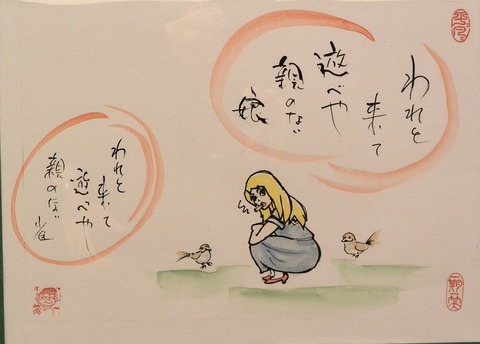 われと
来て
遊べや
親のない
娘
われと
来て
遊べや
親のない
雀